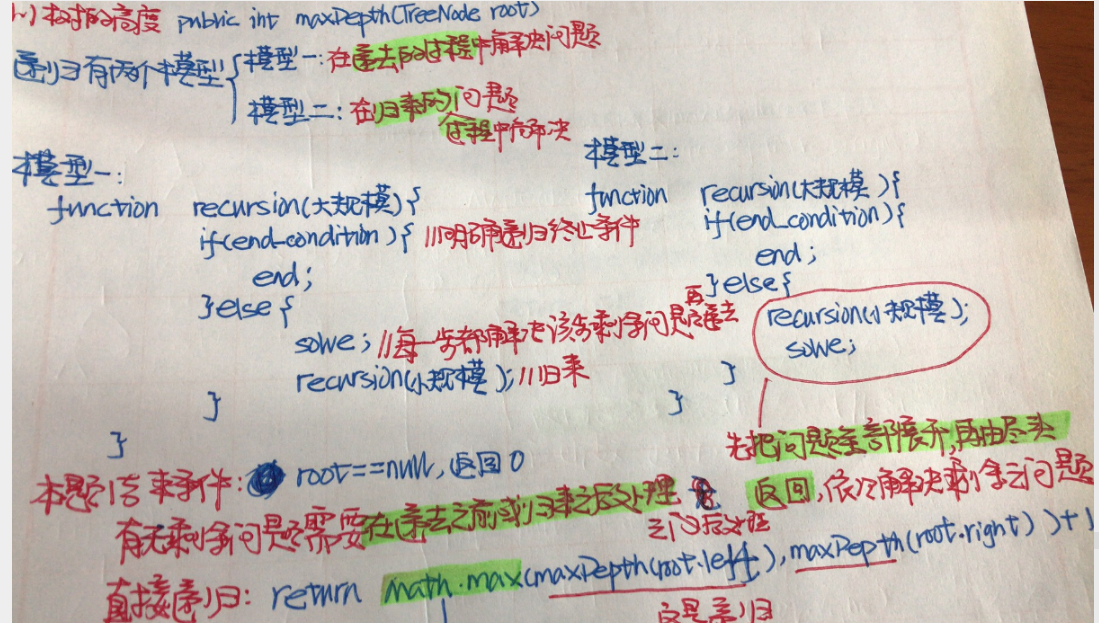 (1) 树的高度 public int maxDepth(TreeNode root)
递归有两个模型
模型一:在递去的过程中解决问题
模型二:在归来的问题
过程中解决
模型一:
function recursion(大规模){
if(end_condition){ //明确递归终止条件
end;
}else{
solve; //每一步都解决该步剩余问题再递去
recursion(小规模); //归来
}
}
模型二:
function recursion(大规模){
if(end_condition){
end;
}else{
recursion(小规模);
solve;
}
}
先把问题全部展开,再由尽头
返回,依次解决剩余问题
本题结束条件: root==null,返回0
有无剩余问题需要在递去之前或归来之后处理
直接递归: return math.max(maxDepth(root.left),maxDepth(root.right))+1
这是递归